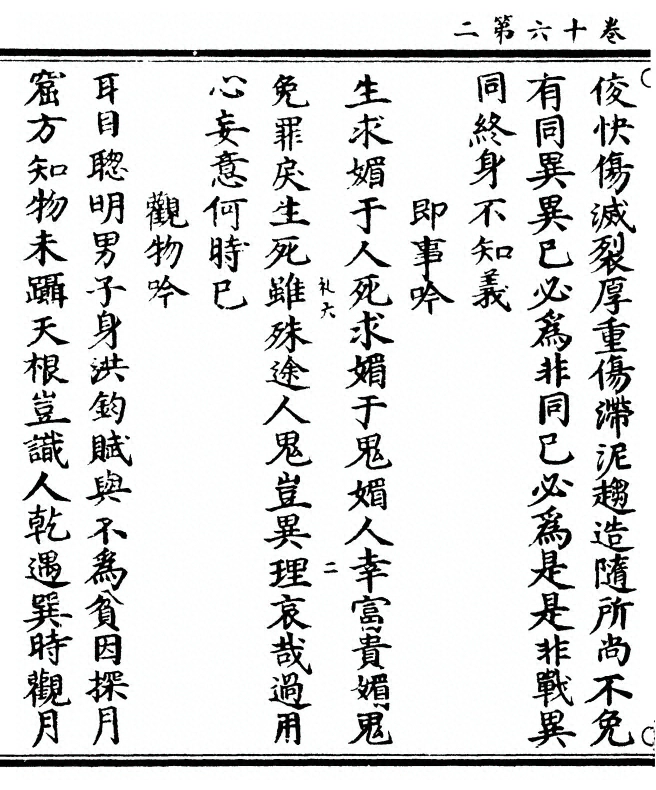 卷十六第二
俊快傷滅裂厚重傷滯泥趨造隨所尚不免
有同異異己必為非同己必為是是非戰異
同終身不知義
即事吟
生求媚于人死求媚于鬼媚人幸富貴媚鬼
免罪戾生死雖殊途人鬼豈異理二哀哉過用
心妄意何時已
觀物吟
耳目聰明男子身洪鈞賦與不為貧因探月
窟方知物未躡天根豈識人乾遇巽時觀月